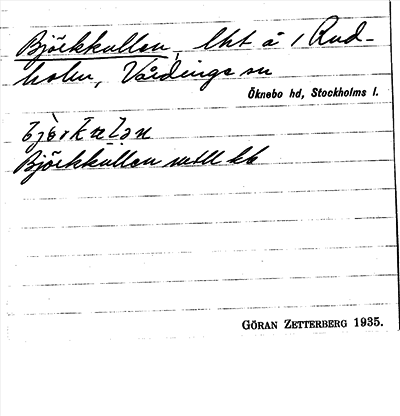 Björkkullen, lht å 1 Rud-
holm, Vårdinge sn
Öknebo hd, Stockholms l.
Björkkullen enst. kb
GÖRAN ZETTERBERG 1935.